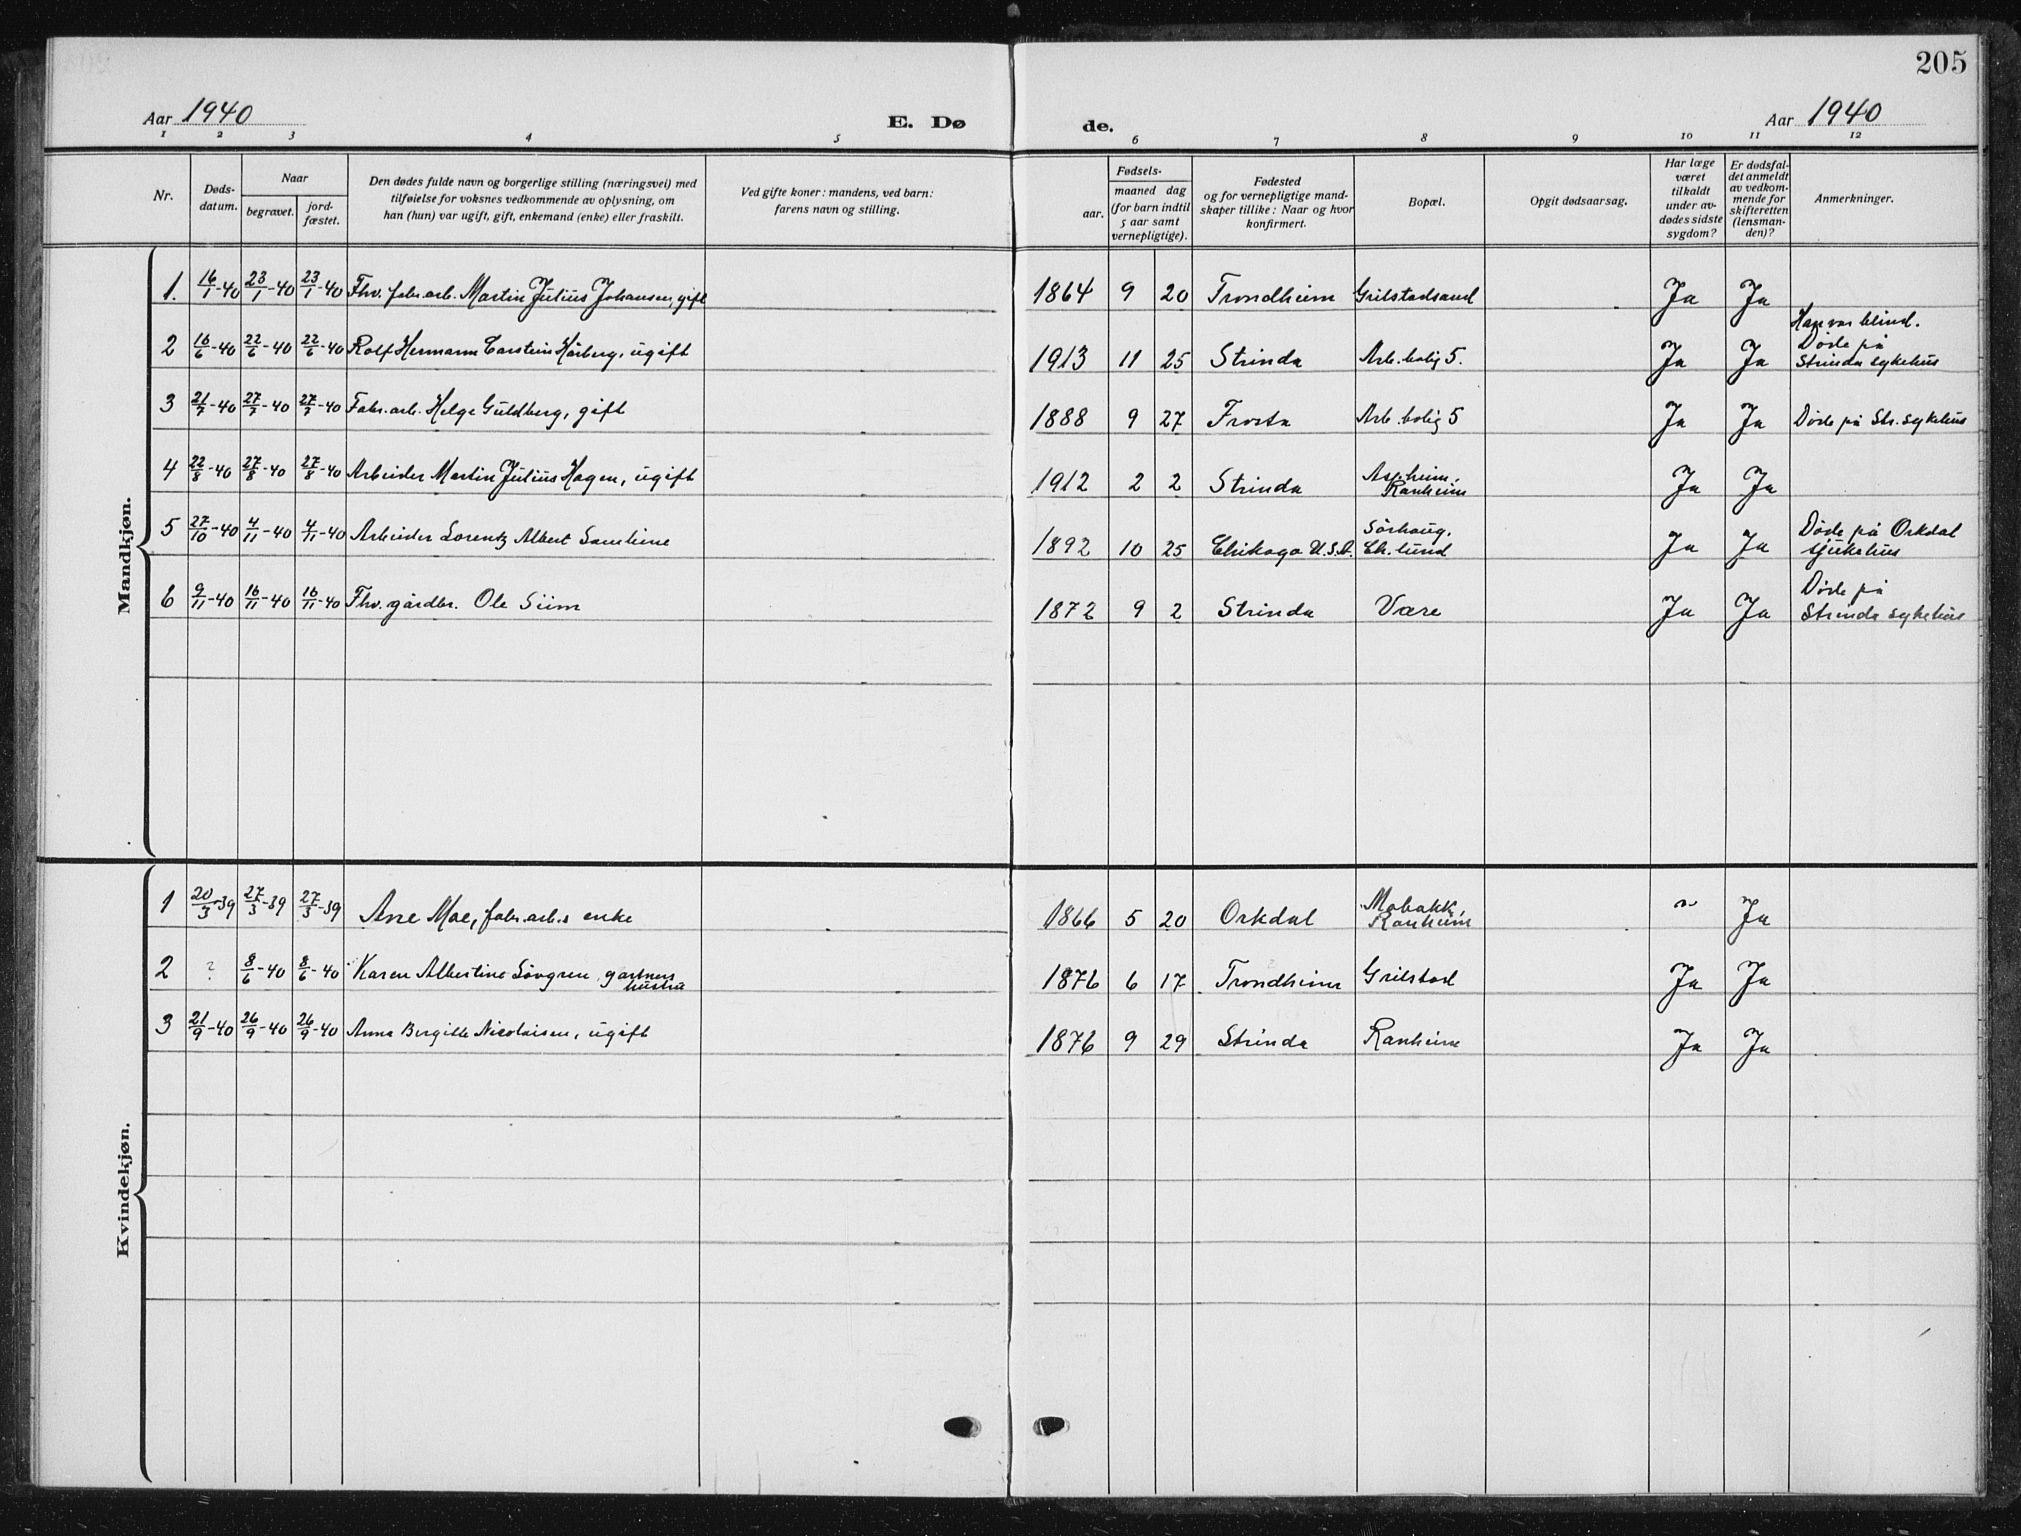 205
Aar 1940 E. Dø de. Aar 1940
1 2 3 4 5 6 7 8 9 10 11 12
Nr.
Døds-
datum.
Naar
begravet.
jord-
fæstet.
Den dødes fulde navn og borgerlige stilling (næringsvei) med
tilføielse for voksnes vedkommende av oplysning, om
han (hun) var ugift, gift, enkemand (enke) eller fraskilt.
Ved gifte koner: mandens, ved barn:
farens navn og stilling.
Fødsels-
aar.
maaned dag
(for barn indtil
5 aar samt
vernepligtige).
Fødested
og for vernepligtige mand-
skaper tillike: Naar og hvor
konfirmert.
Bopæl.
Opgit dødsaarsag.
Har læge
været
tilkaldt
under av-
dødes sidste
sygdom?
Er dødsfal-
det anmeldt
av vedkom-
mende for
skifteretten
(lensman-
den)?
Anmerkninger.
Mandkjøn.
1. 16/1-40 23/1-40 23/1-40 Fhv. fabr.arb. Martin Julius Johansen, gift 1864 9 20 Trondheim Grilstadsand Ja Ja
2 16/6-40 22/6-40 22/6-40 Rolf Hermann Carstein Hårberg, ugift 1913 11 25 Strinda Arb.bolig 5. Ja Ja Han var blind.
Døde på
Strinda sykehus
3 21/7-40 27/7-40 27/7-40 Fabr.arb. Helge Guldberg, gift 1888 9 27 Frosta Arb.bolig 5 Ja Ja Døde på Str. sykehus
4 22/8-40 27/8-40 27/8-40 Arbeider Martin Julius Hagen, ugift 1912 2 2 Strinda Aspheim,
Ranheim Ja Ja
5 27/10-40 4/11-40 4/11-40 Arbeider Lorentz Albert 1892 10 25 Chikago U.S.A. Sörhaug,
Ch.lund Ja Ja Døde på Orkdal
sjukehus
6 9/11-40 16/11-40 16/11-40 Fhv. gårdbr. Ole Siim 1872 9 2 Strinda Være Ja Ja Døde på
Strinda sykehus
Kvindekjøn.
1 20/3-39 27/3-39 27/3-39 Ane Moe, fabr.arb.s enke 1866 5 20 Orkdal Mobakk,
Ranheim " Ja
2 ? 8/6-40 8/6-40 Karen Albertine Lövgren, gartners
hustru 1876 6 17 Trondheim Grilstad Ja Ja
3 21/9-40 26/9-40 26/9-40 Anna Bergitte Nicolaisen, ugift 1876 9 29 Strinda Ranheim Ja Ja